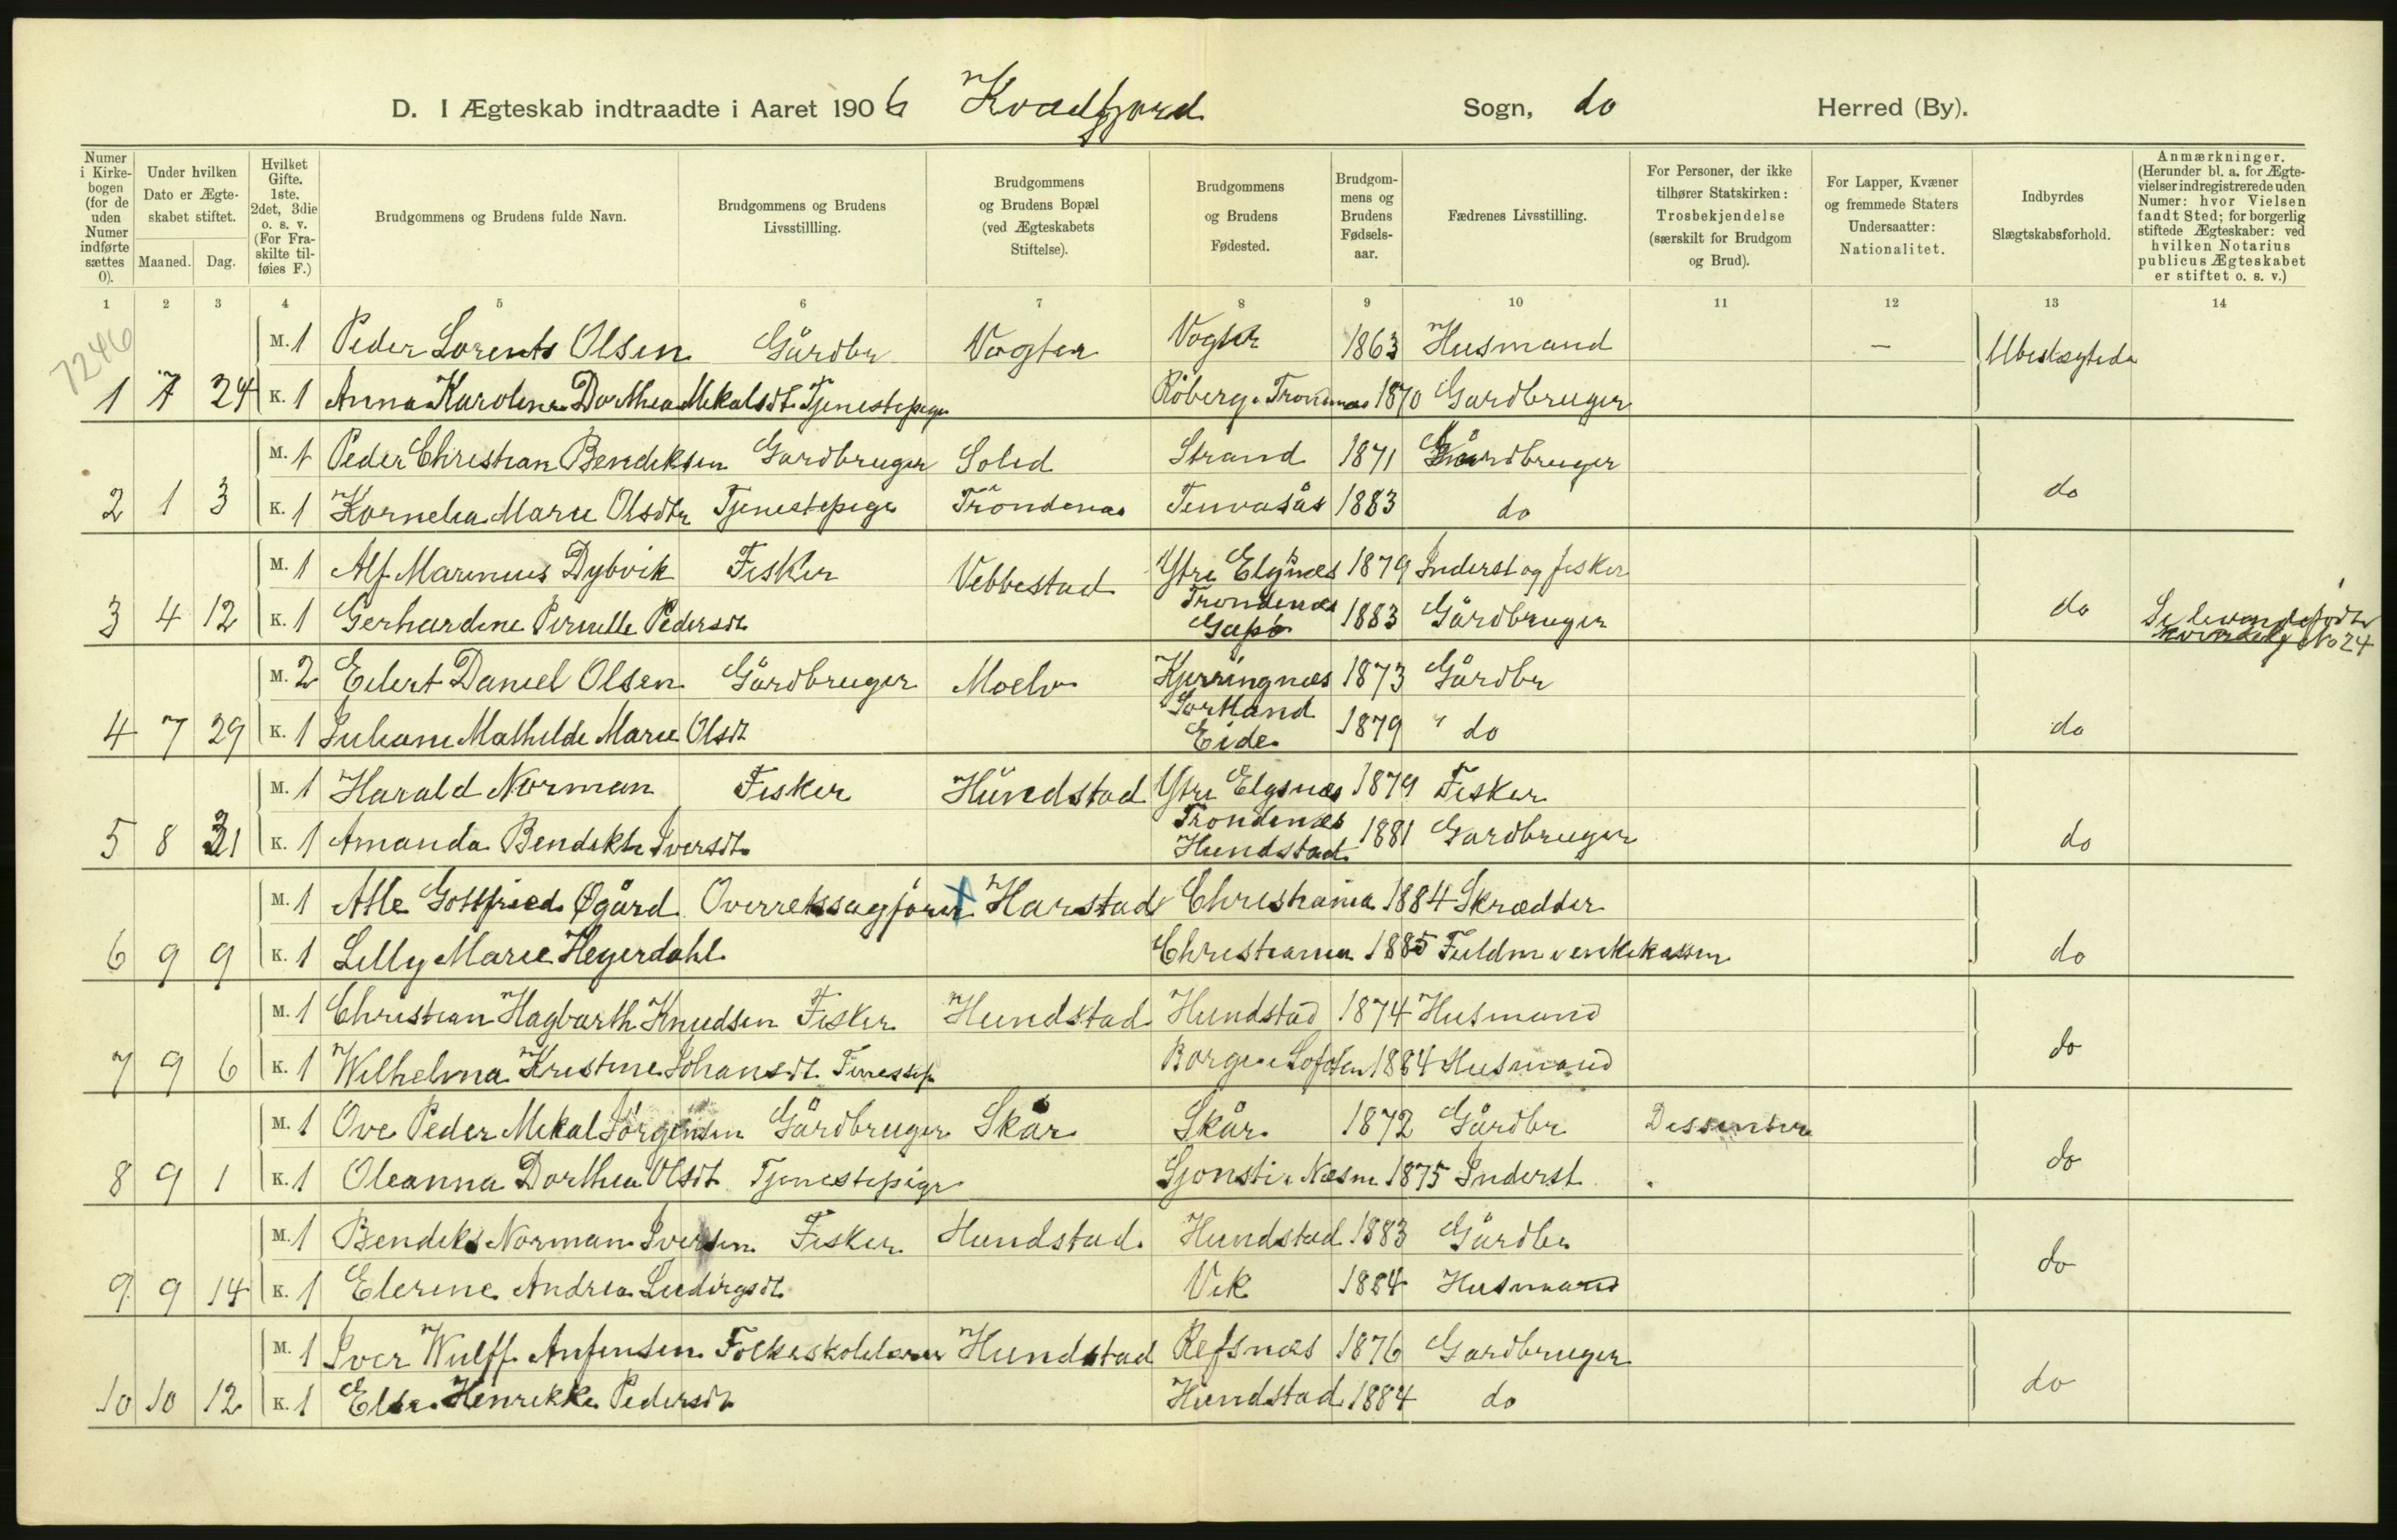 D. I Ægteskab indtraadte i Aaret 1906 Kvædfjord Sogn, do Herred (By).
Numer i Kirkebogen (for de uden Numer indførte sættes 0).
Under hvilken Dato er Ægteskabet stiftet.
Maaned. Dag.
Hvilket Gifte. 1ste. 2det, 3die o. s. v. (For Fraskilte tilføies F.)
Brudgommens og Brudens fulde Navn.
Brudgommens og Brudens Livsstillling.
Brudgommens og Brudens Bopæl (ved Ægteskabets Stiftelse).
Brudgommens og Brudens Fødested.
Brudgommens og Brudens Fødselsaar.
Fædrenes Livsstilling.
For Personer, der ikke tilhører Statskirken: Trosbekjendelse (særskilt for Brudgom og Brud).
For Lapper, Kvæner og fremmede Staters Undersaatter: Nationalitet.
Indbyrdes Slægtskabsforhold.
Anmærkninger. (Herunder bl. a. for Ægtevielser indregistrerede uden Numer: hvor Vielsen fandt Sted; for borgerlig stiftede Ægteskaber: ved hvilken Notarius publicus Ægteskabet er stiftet o. s. v.)
1 2 3 4 5 6 7 8 9 10 11 12 13 14
7246
M. 1 Peder Lorents Olsen Gårdbr Vogter Vogter 1863 Husmand — Ubeslægtede
1 7 24 K. 1 Anna Karoline Dorthea Mikalsdt. Tjenestepige Röberg. Trondenæs 1870 Gardbruger
M. 1 Peder Christian Bendiksen Gardbruger Solid Strand 1871 Gårdbruger
2 1 3 K. 1 Kornelia Marie Olsdtr Tjenestepige Tröndenæs Tenvasås 1883 do do
M. 1 Alf Marinius Dybvik Fisker Vebbestad Ytre Elgsnæs 1879 Inderst og fisker
Trondenæs
3 4 12 K. 1 Gerhardine Pernille Pedersdt. Gapø 1883 Gårdbruger do Se levendefødte
No 24
M. 2 Edert Daniel Olsen Gårdbruger Moelv Kjerringnæs 1873 Gårdbr
Sortland
4 7 29 K. 1 Juliane Mathilde Marie Olsdt Eide 1879 do do
M. 1 Harald Norman Fisker Hundstad Ytre Elgsnæs 1879 Fisker
Trondenæs
5 8 31 K. 1 Amanda Bendikte Iversdt. Hundstad 1881 Gardbruger do
M. 1 Atle Gottfried Øgård Overretssagfører X Harstad Christiania 1884 Skrædder
6 9 9 K. 1 Lilly Marie Heyerdahl Christiania 1885 Fuldm i enkekassen do
M. 1 Christian Hagbarth Knudsen Fisker Hundstad Hundstad 1874 Husmand
7 9 6 K. 1 Wilhelma Kristine Johansdt. Borge i Lofoten 1884 Husmand do
M. 1 Ove Peder Mikal Jörgensen Gårdbruger Skår Skår 1872 Gårdbr Dissenter
8 9 1 K. 1 Oleanna Dorthea Olsdt. Tjenestepige Sjonsti i Næsne 1875 Inderst do
M. 1 Bendiks Norman Iversen Fisker Hundstad Hundstad 1883 Gårdbr
9 9 14 K. 1 Elerine Andrea Ludvigsdt. Vik 1884 Husmand do
M. 1 Iver Wulff Anfinsen Folkeskolelærer Hundstad Refsnæs 1876 Gardbruger
10 10 12 K. 1 Elise Henrikke Pedersdt Hundstad 1884 do do